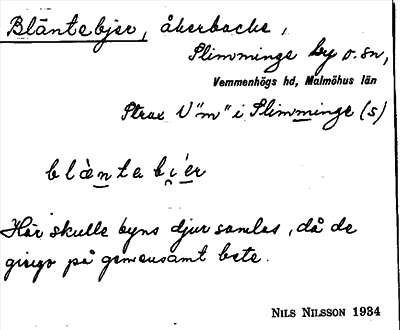 Bläntebjer, åkerbacke,
Slimminge by o. sn,
Vemmenhögs hd, Malmöhus län
Strax V "m" i Slimminge (s)
blæ̀ntabi̯ér
Här skulle byns djur samlas, då de
gingo på gemensamt bete.
NILS NILSSON 1934